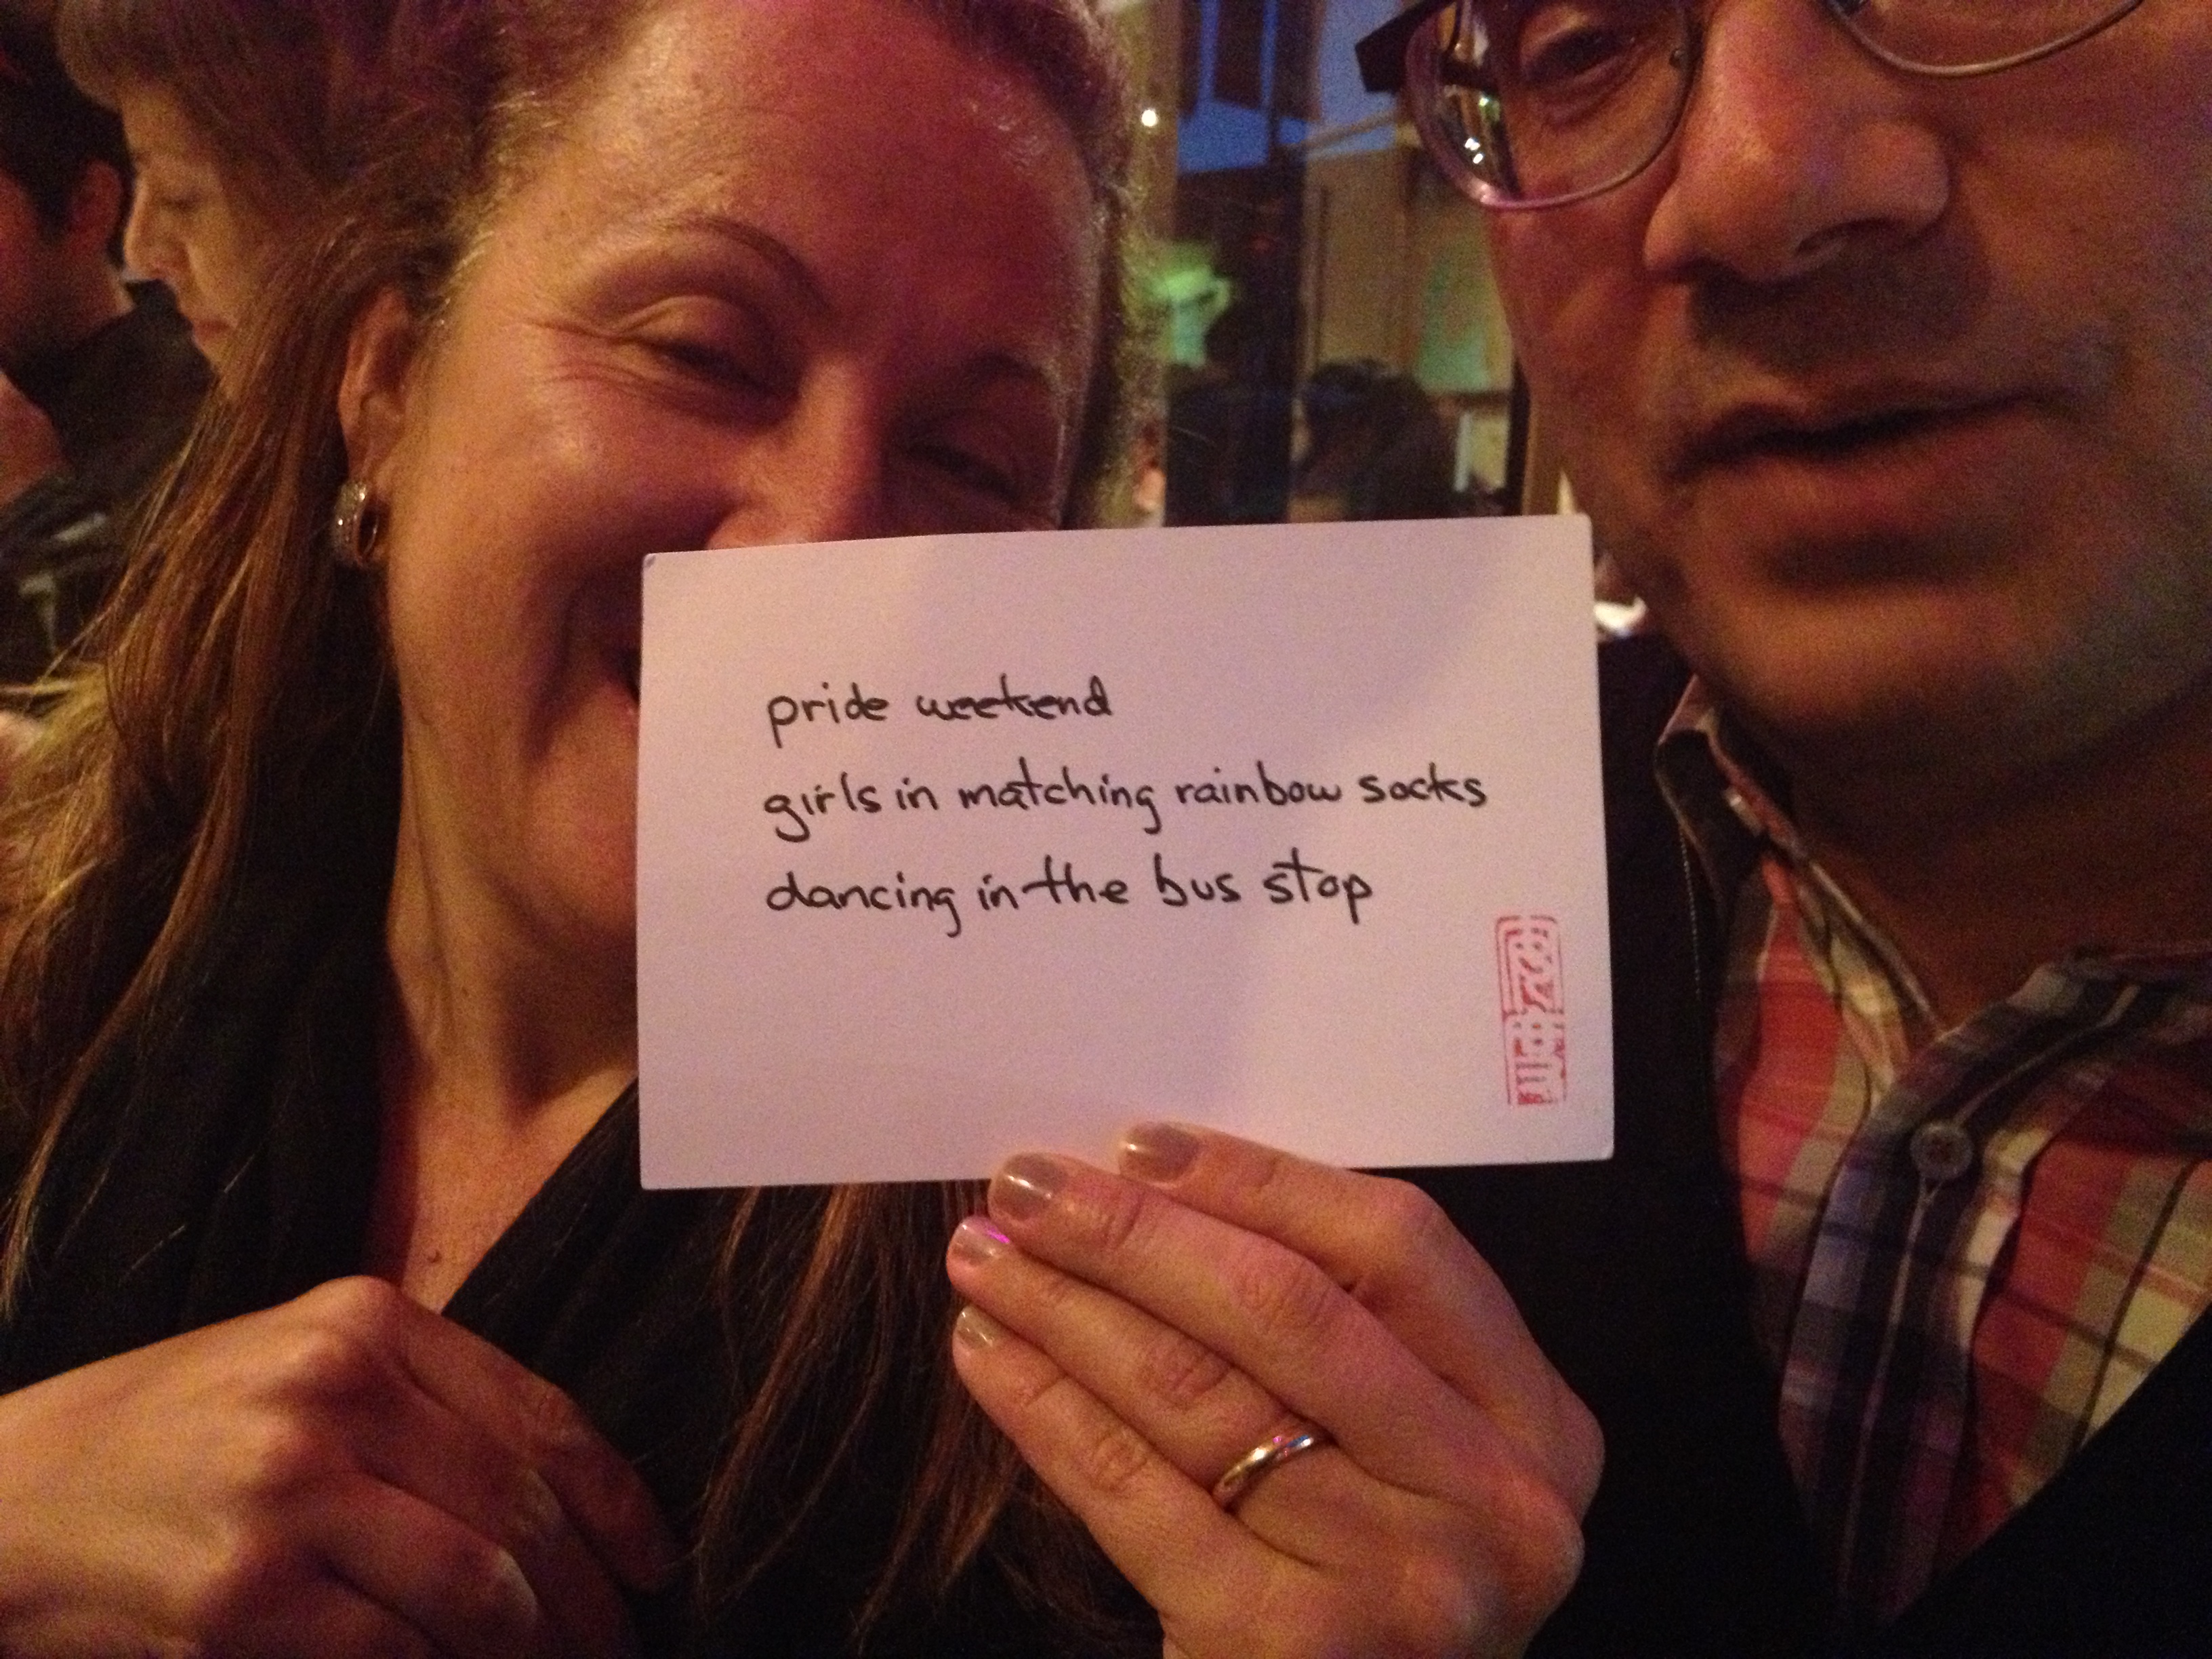 pride weekend
girls in matching rainbow socks
dancing in the bus stop